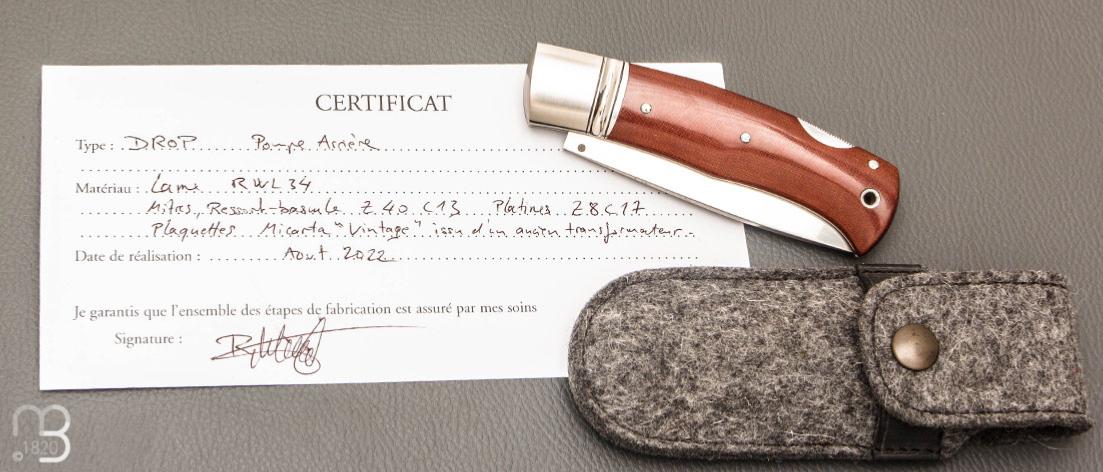 CERTIFICAT
Type : DROP Pompe Arrière
Matériau : Lame RWL34
Mitres, Ressort-bascule Z40 C13 Platines Z8C17
Plaquettes Micarta "Vintage" issu d'un ancien transformateur.
Date de réalisation : Aout 2022
Je garantis que l'ensemble des étapes de fabrication est assuré par mes soins
Signature :
© 1820